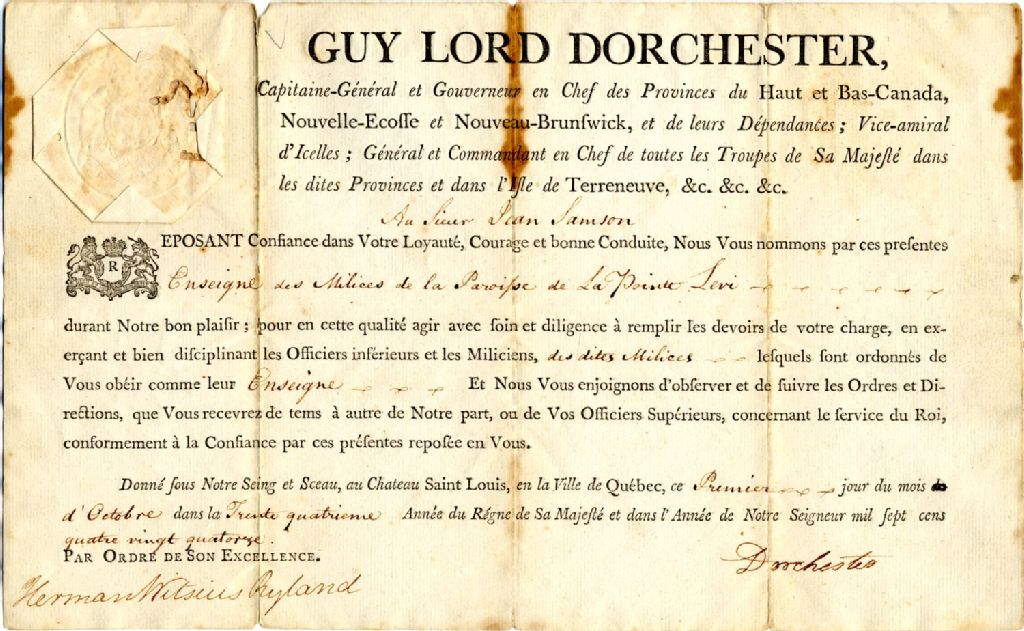 GUY LORD DORCHESTER,
Capitaine-Général et Gouverneur en Chef des Provinces du Haut et Bas-Canada,
Nouvelle-Ecosse et Nouveau-Brunſwick, et de leurs Dépendances; Vice-amiral
d'Icelles; Général et Commandant en Chef de toutes les Troupes de Sa Majeſté dans
les dites Provinces et dans l'Iſle de Terreneuve, &c. &c. &c.
Au Sieur Jean Samson
R EPOSANT Confiance dans Votre Loyauté, Courage et bonne Conduite, Nous Vous nommons par ces preſentes
Enseigne des Milices de la Paroiſse de La Pointe Levi
durant Notre bon plaiſir; pour en cette qualité agir avec ſoin et diligence à remplir les devoirs de votre charge, en ex-
erçant et bien diſciplinant les Officiers inférieurs et les Miliciens, des dites Milices leſquels ſont ordonnés de
Vous obéir comme leur Enseigne Et Nous Vous enjoignons d'obſerver et de ſuivre les Ordres et Di-
rections, que Vous recevrez de tems à autre de Notre part, ou de Vos Officiers Supérieurs, concernant le ſervice du Roi,
conformement à la Confiance par ces préſentes repoſée en Vous.
Donné ſous Notre Seing et Sceau, au Chateau Saint Louis, en la Ville de Québec, ce Premier jour du mois
d'Octobre dans la Trente quatrieme Année du Régne de Sa Majeſté et dans l'Année de Notre Seigneur mil ſept cens
quatre vingt quatorze.
PAR ORDRE DE SON EXCELLENCE.
Dorchester
Herman Witsius Ryland